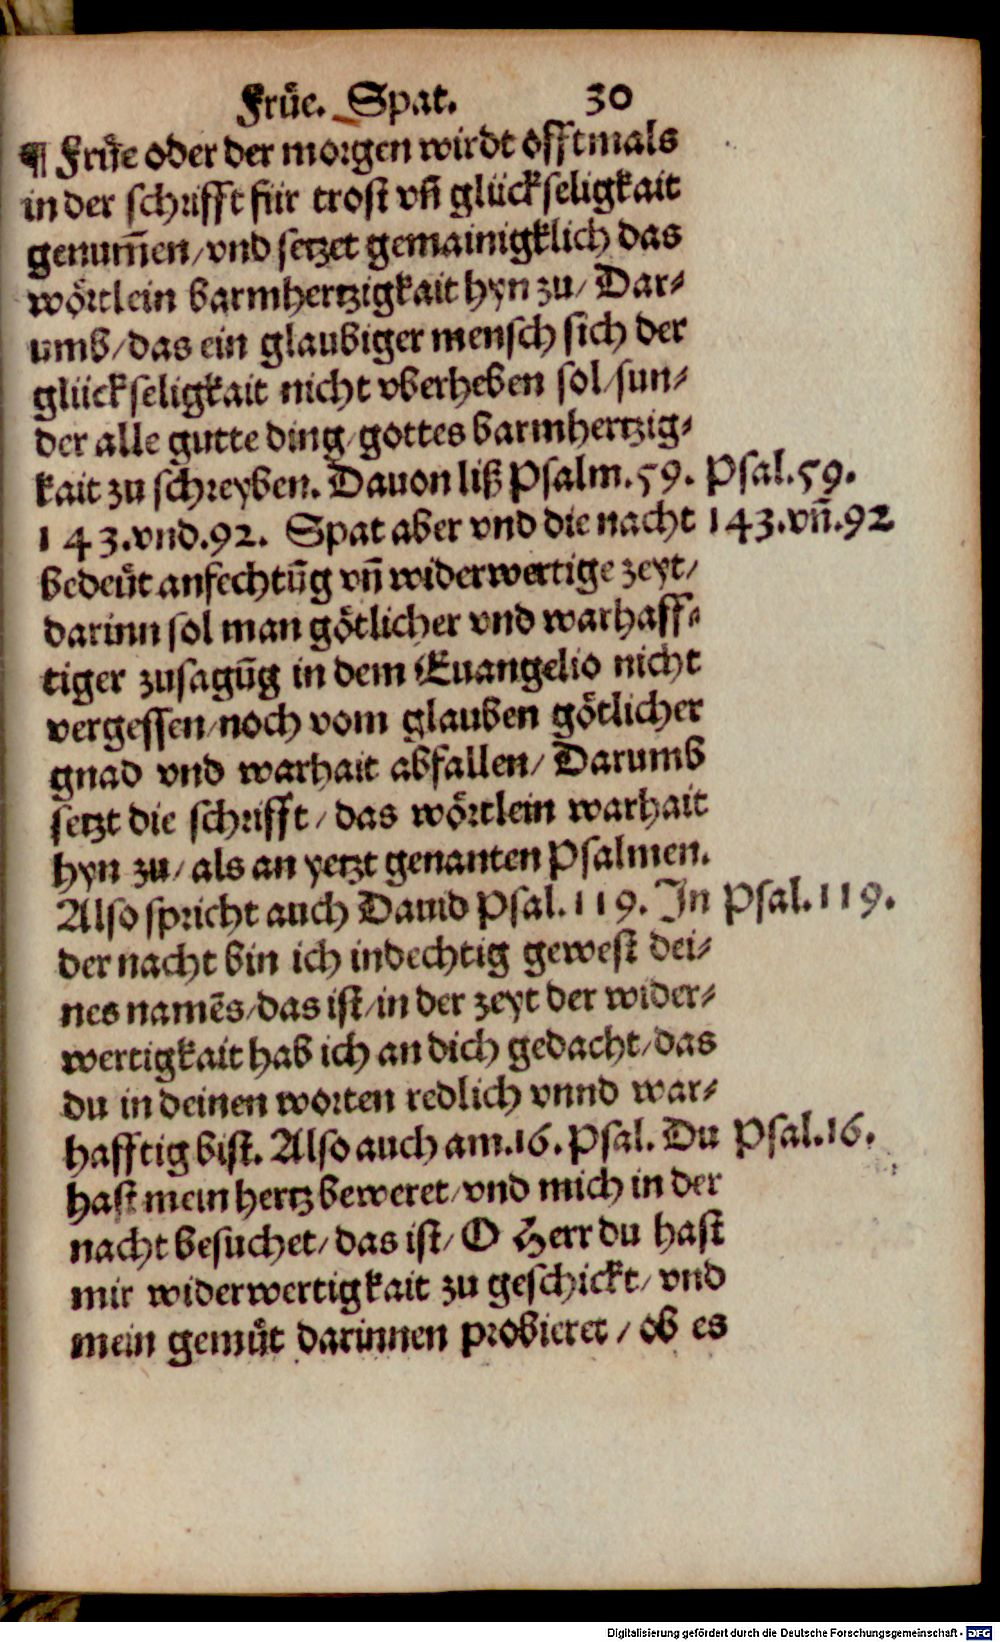 Früe. Spat. 30
¶ Früe oder der morgen wirdt offtmals
in der schrifft für trost vn̄ glückseligkait
genum̄en/vnd setzet gemainigklich das
wörtlein barmhertzigkait hyn zu/ Dar⸗
umb/das ein glaubiger mensch sich der
glückseligkait nicht vberheben sol/sun⸗
der alle gutte ding/gottes barmhertzig⸗
kait zu schreyben. Dauon liß Psalm.59. Psal.59.
143.vnd.92. Spat aber vnd die nacht 143.vn̄.92
bedeüt anfechtūg vn̄ widerwertige zeyt/
darinn sol man götlicher vnd warhaff⸗
tiger zusagūg in dem Euangelio nicht
vergessen/noch vom glauben götlicher
gnad vnd warhait abfallen/ Darumb
setzt die schrifft/ das wörtlein warhait
hyn zu/ als an yetzt genanten Psalmen.
Also spricht auch Dauid Psal.119. In Psal.119.
der nacht bin ich indechtig gewest dei⸗
nes namēs/das ist/in der zeyt der wider⸗
wertigkait hab ich an dich gedacht/das
du in deinen worten redlich vnnd war⸗
hafftig bist. Also auch am.16.Psal. Du Psal.16.
hast mein hertz beweret/vnd mich in der
nacht besuchet/das ist/ O Herr du hast
mir widerwertigkait zu geschickt/ vnd
mein gemüt darinnen probieret/ ob es
Digitalisierung gefördert durch die Deutsche Forschungsgemeinschaft - DFG